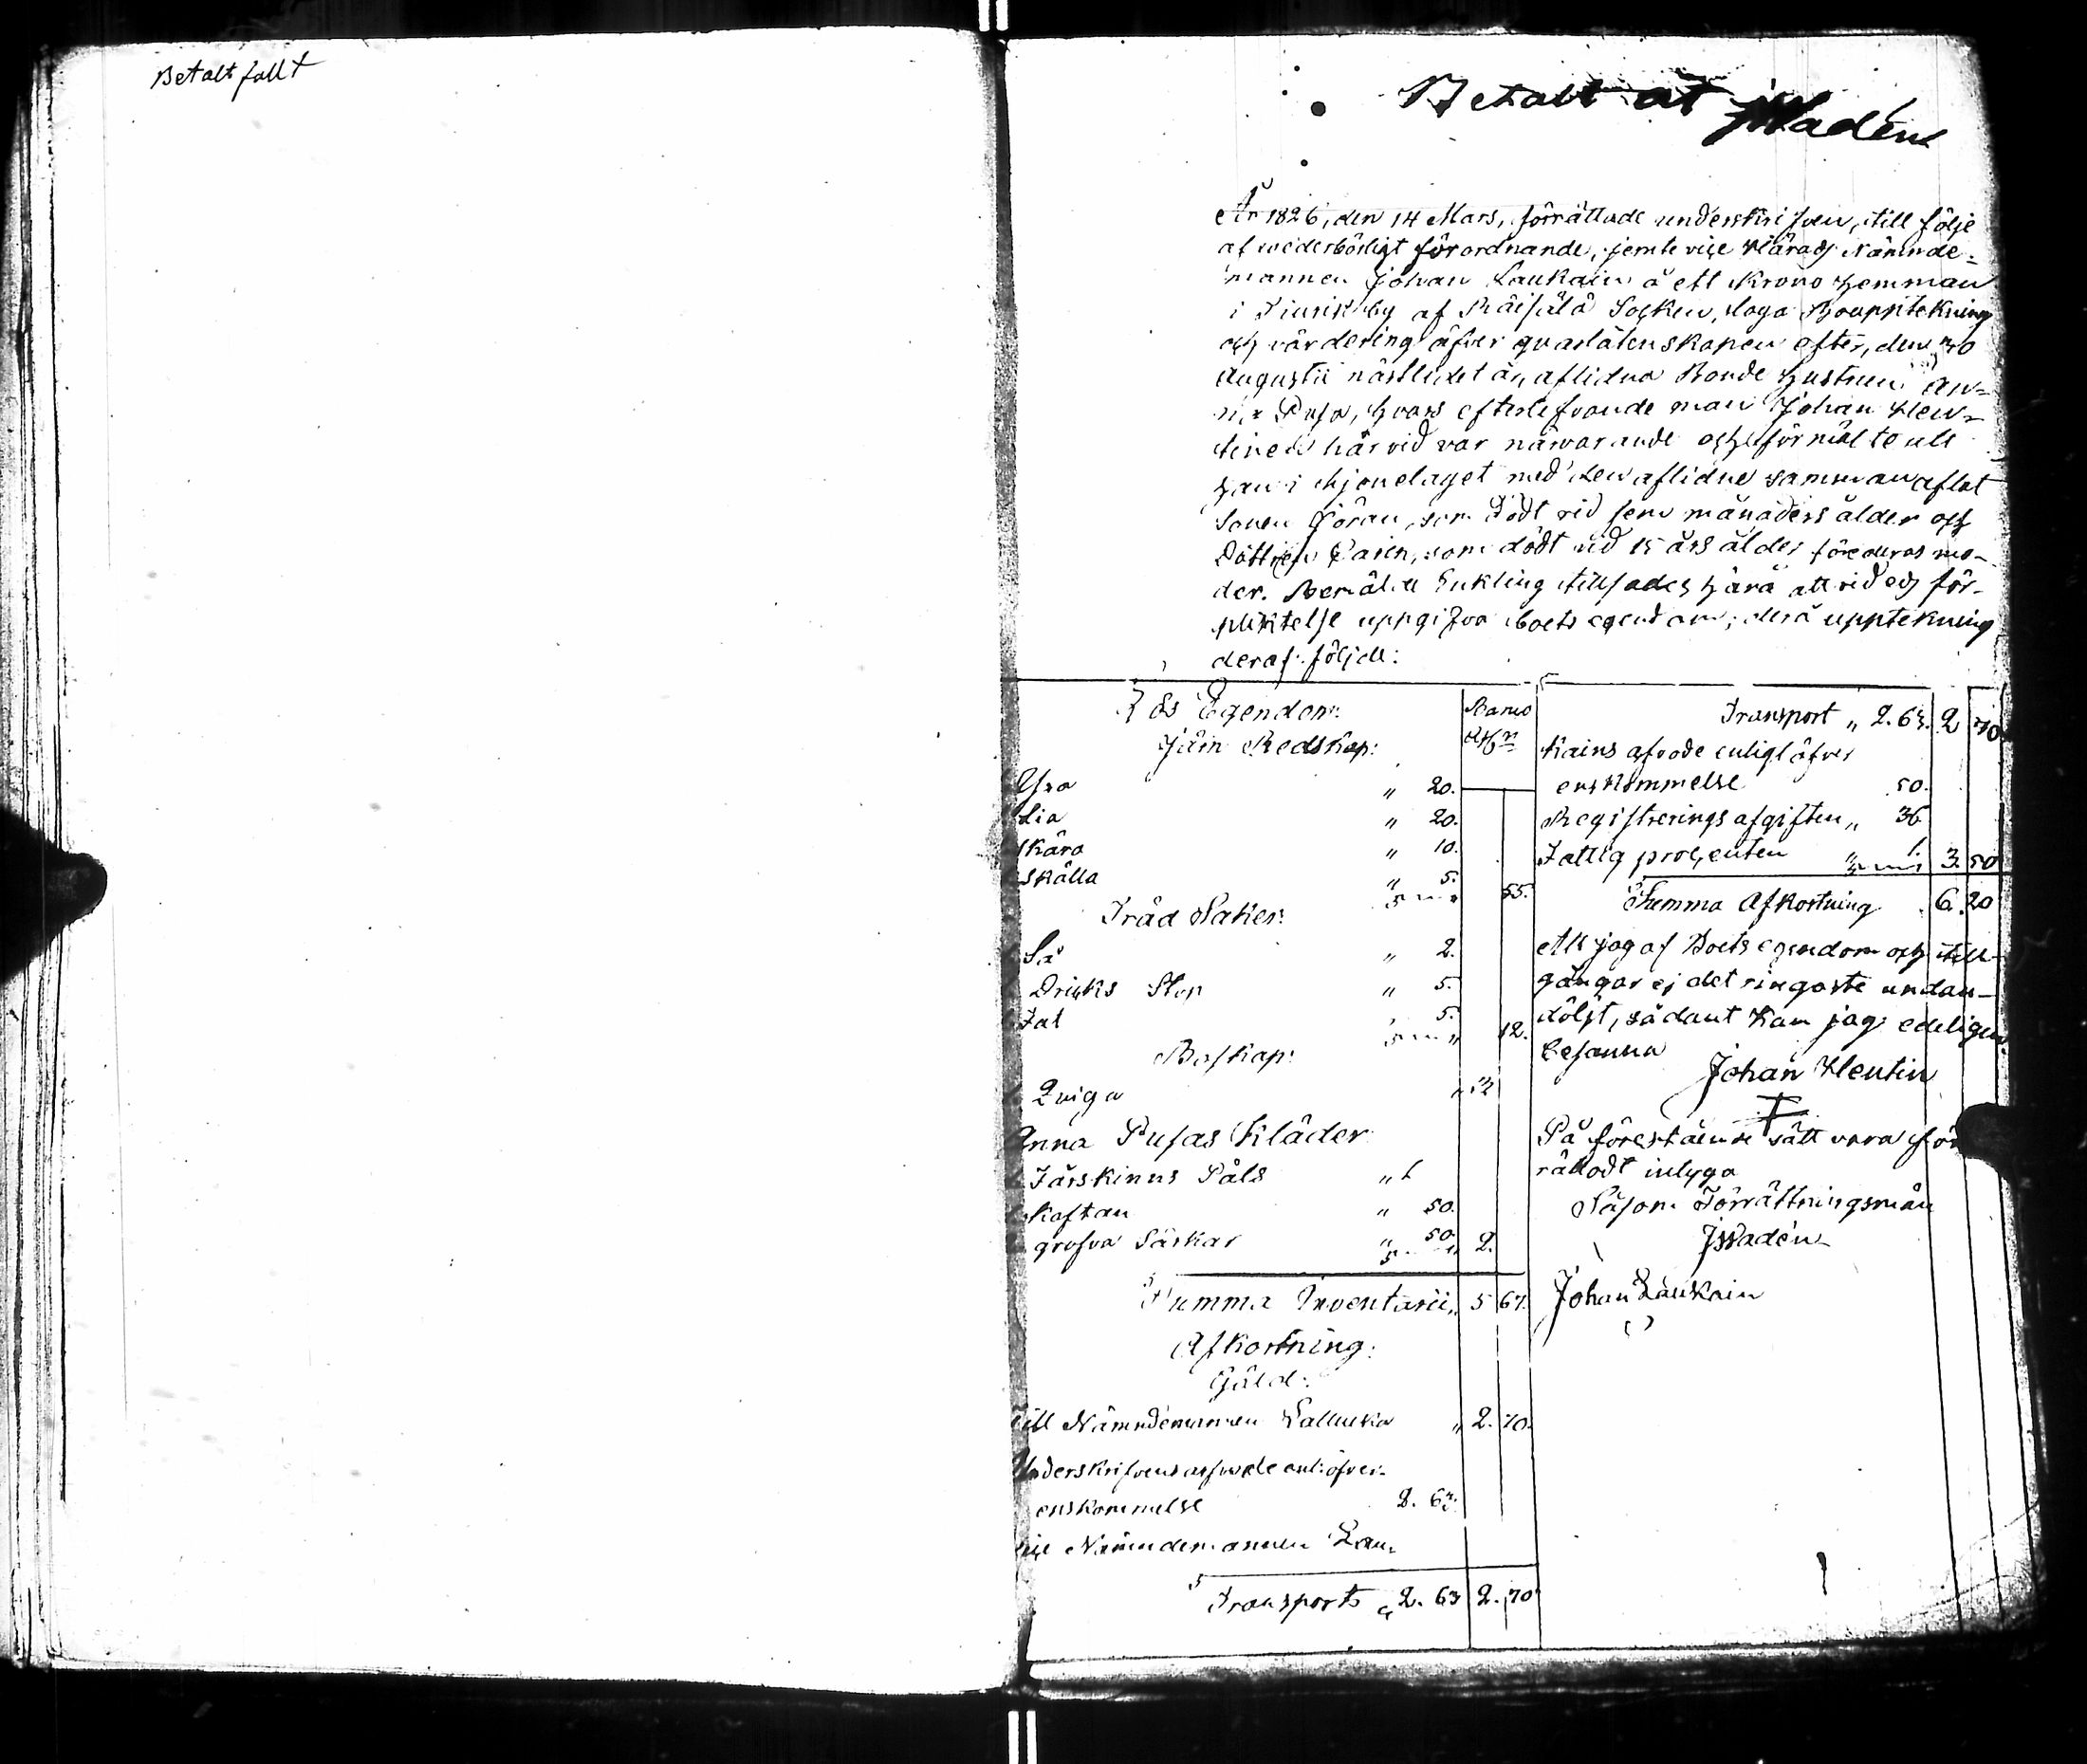 Betalt fullt
Betalt åt JWadén
År 1826, den 14 Mars, förrättade underskrifven, till följe
af wederbörligt förordnande, jemte vice Härads Nämnde-
mannen Johan Laukain å ett Krono Hemman
i by af Räisälä Socken, laga Bouppteknings
och värdering äfver qvarlåtenskapen efter, den 30
Augustii nästledet år, aflidna Bonde Hustrun An-
na Pusa, hvars efterlefvande man Johan Hen-
tinen härvid var närvarande och förmälte att
han i ägtenskapet med den aflidne sammanaflat
Sonen Göran, som dödt vid fem månaders ålder och
Dottren Carin, som dödt vid 15 års ålder före deras mo-
der. Bemälde Enkling tillsades härå att vid eds för-
pliktelse uppgifva boets egendom; derå uppteckning
deraf följde:
Lös Egendom: Banco
Järn Redskap: R
Yxa " 20.
Lia " 20.
Skära " 10.
Skälla " 5. 55.
Träd Saker:
Så " 2.
Dricks Stop " 5.
Fat 5. 12.
Boskap:
Qviga " 3
Anna Pusas Kläder
Fårskinns Päls " 1
Kaftan " 50.
grofva Särkar " 50. 2.
Summa Inventarii " 5 67.
Afkortning:
Gäld:
Till Nämndemannen " 2. 70.
Underskrifvens arfvode enl. öfver-
enskommelse 2. 63.
vice Nämndemannen Lau-
Transport " 2. 63 2. 70
Transport " 2. 63. 2 70
kains arfvode enligt öfver
enskommelse 50.
Registrerings afgiften " 36
Fattig procenten " 1. 3. 50
Summa Afkortning 6. 20
Att jag af Boets egendom och till-
gångar ej det ringaste undan-
döljt, sådant kan jag edeligen
besanna
Johan Hentin
På förestående sätt vara för
rättadt intyga
Såsom Förrättningsmän
JWadén
Johan Laukain